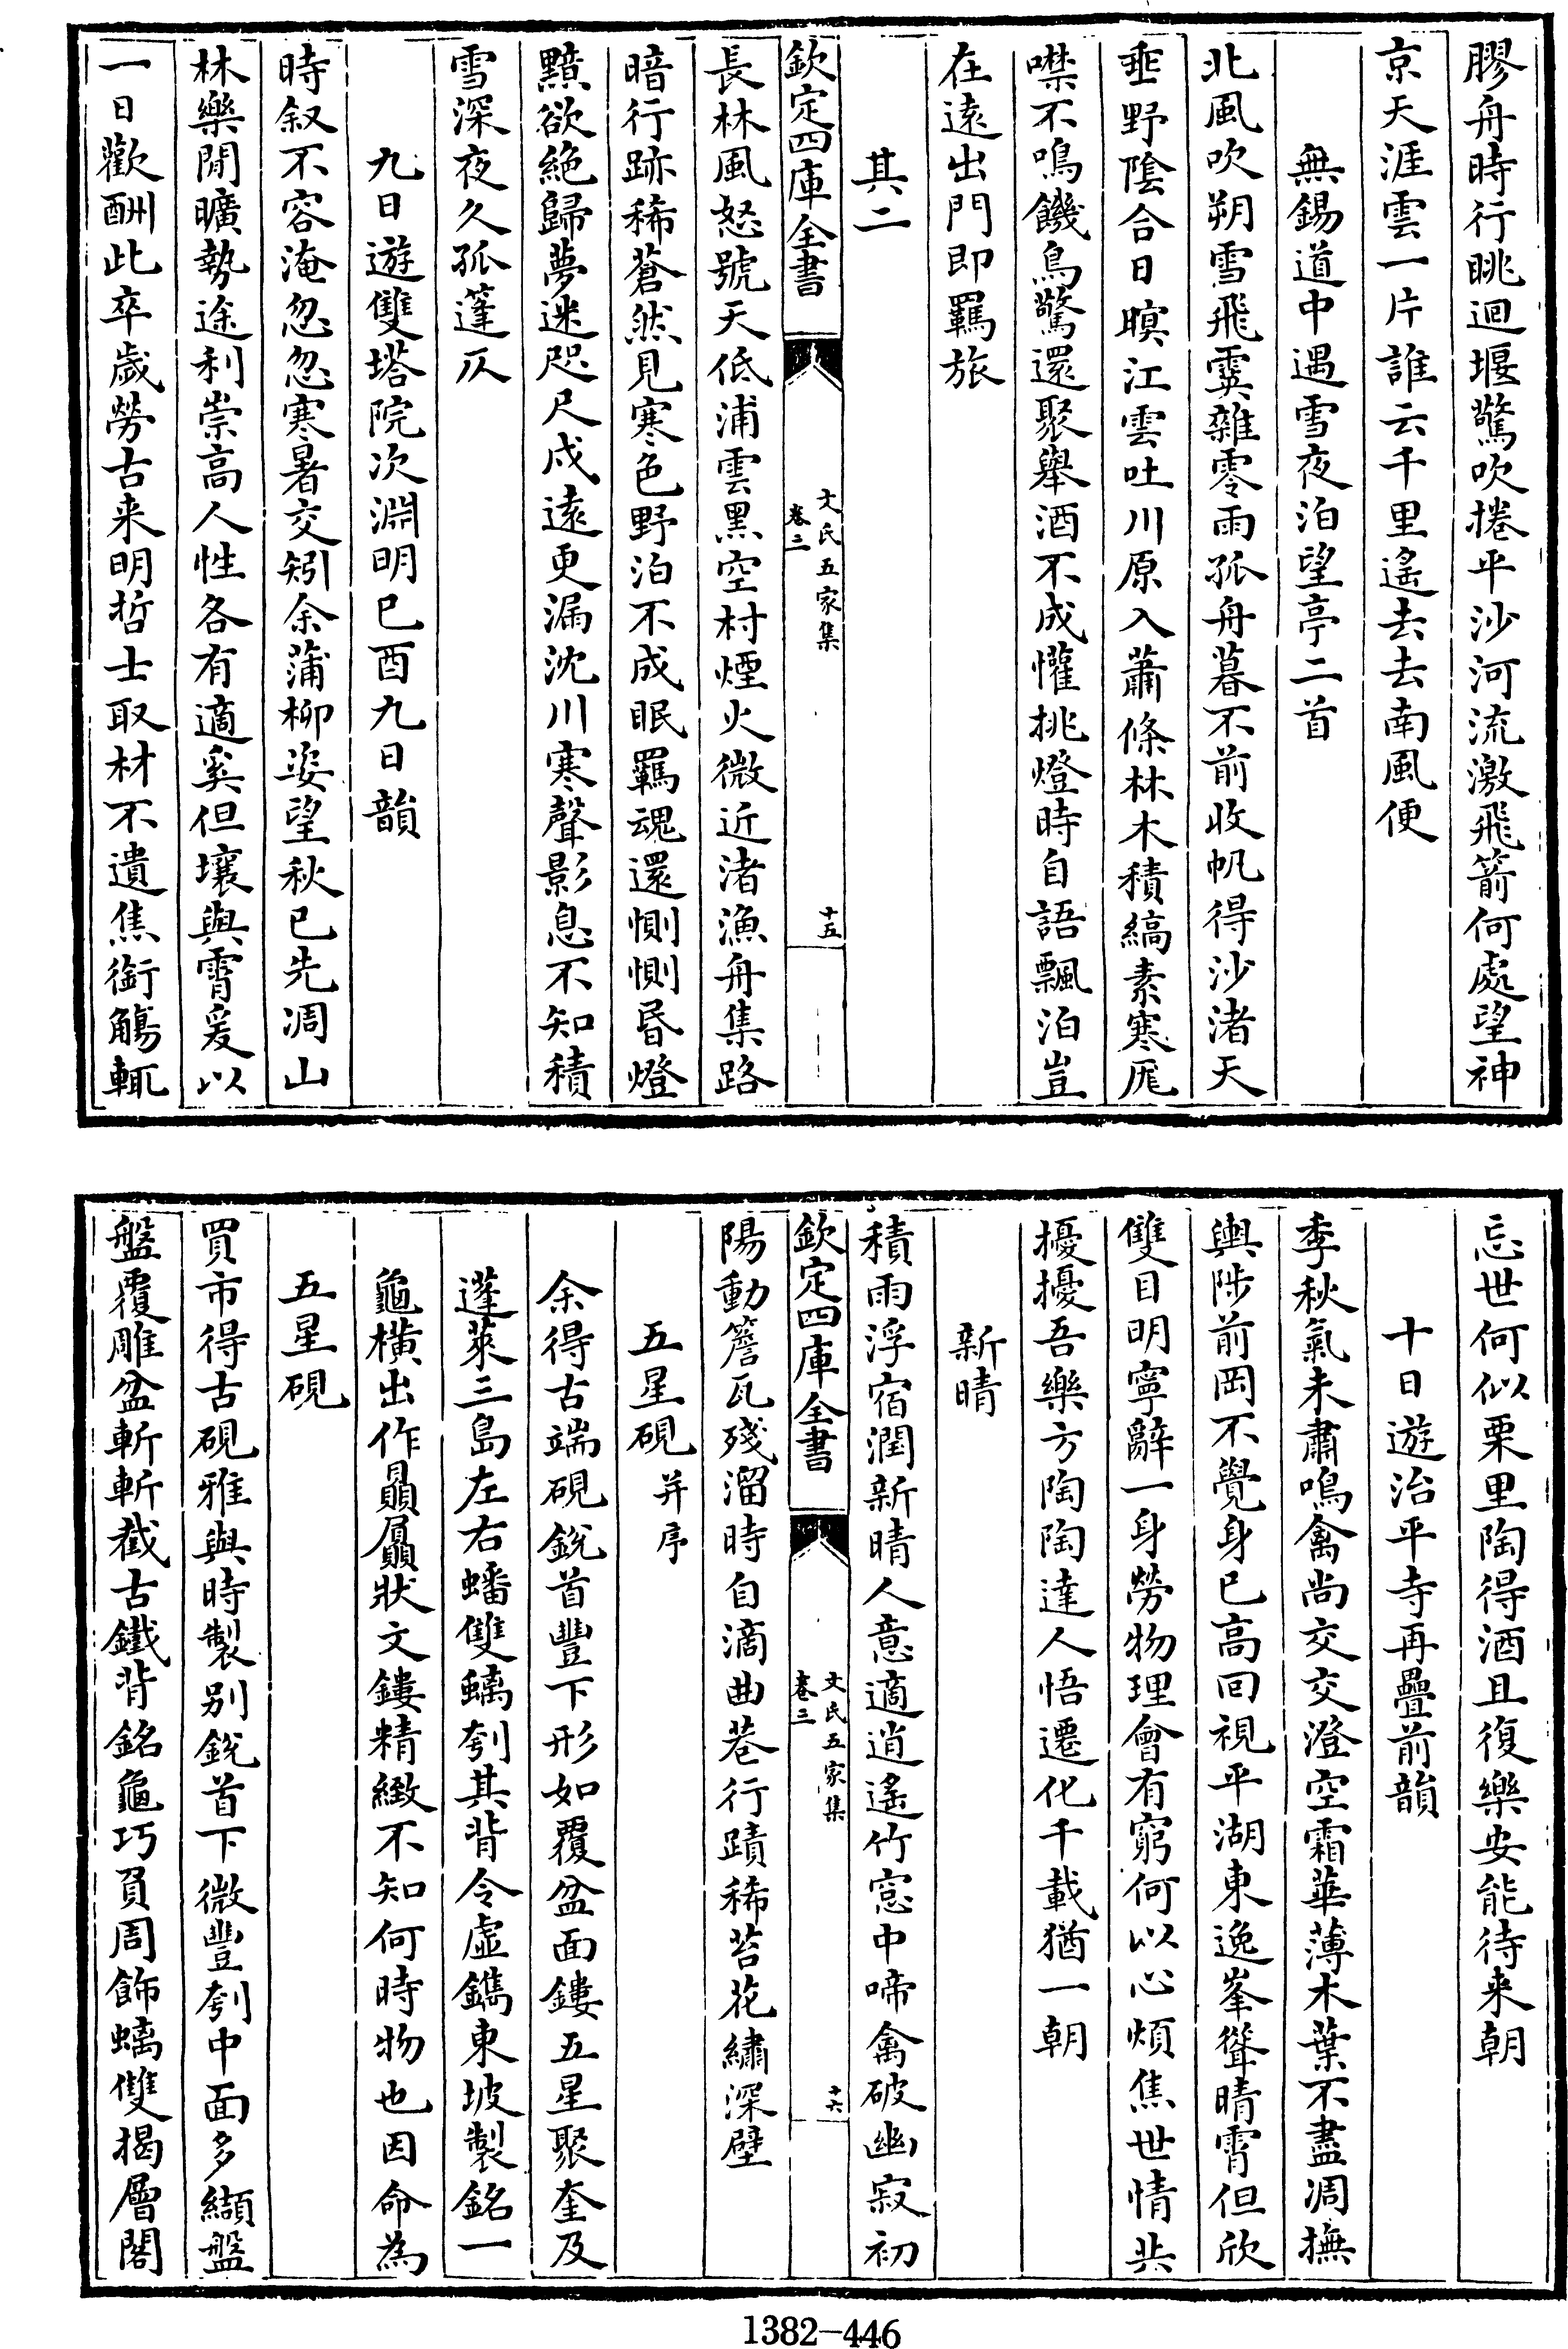 膠舟時行眺迴堰驚吹捲平沙河流激飛箭何處望神
京天涯雲一片誰云千里遙去去南風便
無錫道中遇雪夜泊望亭二首
北風吹朔雪飛霙雜零雨孤舟暮不前收帆得沙渚天
垂野陰合日暝江雲吐川原入蕭條林木積縞素寒厖
噤不鳴饑烏驚還聚舉酒不成懽挑燈時自語飄泊豈
在遠出門即羈旅
其二
欽定四庫全書
文氏五家集
卷二
十五
長林風怒號天低浦雲黑空村煙火微近渚漁舟集路
暗行跡稀蒼然見寒色野泊不成眠羈魂還惻惻昏燈
黯欲絶歸夢迷咫尺戍遠更漏沈川寒聲影息不知積
雪深夜久孤篷仄
九日遊雙塔院次淵明已酉九日韻
時叙不容淹忽忽寒暑交矧余蒲柳姿望秋已先凋山
林樂閒曠勢途利崇高人性各有適奚但壤與霄爰以
一日歡酬此卒歲勞古来明哲士取材不遺焦銜觴輒
忘世何似栗里陶得酒且復樂安能待来朝
十日遊治平寺再疊前韻
季秋氣未肅鳴禽尚交交澄空霜華薄木葉不盡凋撫
輿陟前岡不覺身已高回視平湖東逸峯聳晴霄但欣
雙目明寧辭一身勞物理會有窮何以心煩焦世情共
擾擾吾樂方陶陶達人悟遷化千載猶一朝
新晴
積雨浮宿潤新晴人意適逍遙竹窓中啼禽破幽寂初
欽定四庫全書
文氏五家集
卷二
十六
陽動簷瓦殘溜時自滴曲巷行蹟稀苔花繡深壁
五星硯 并序
余得古端硯銳首豐下形如覆盆面鏤五星聚奎及
蓬萊三島左右蟠雙螭刳其背令虛鐫東坡製銘一
龜横出作贔屭狀文鏤精緻不知何時物也因命為
五星硯
買市得古硯雅與時製别銳首下微豐刳中面多纈盤
盤覆雕盆斬斬截古鐵背銘龜巧負周飾螭雙揭層閣
1382-446